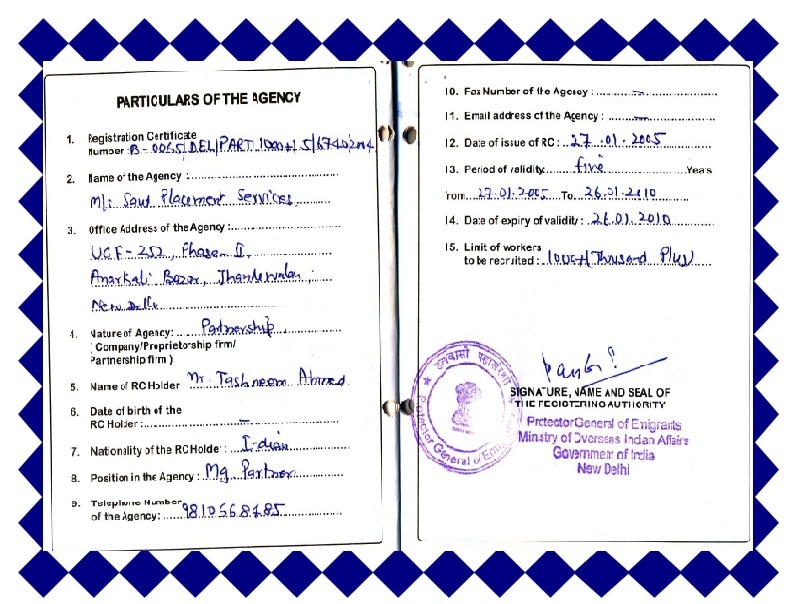 PARTICULARS OF THE AGENCY
1. Registration Certificate
Number : B-0055/DEL/PART/1000+/5/6740/2004
2. Name of the Agency :
M/s Soul Placement Services
3. Office Address of the Agency :
UCF-252, Phase II,
Anarkali Bazar, Jhandewalan,
New Delhi
4. Nature of Agency: Partnership
( Company/Proprietorship firm/
Partnership firm )
5. Name of RC Holder Mr. Tashneem Ahmed
6. Date of birth of the
RC Holder : –
7. Nationality of the RC Holder : Indian
8. Position in the Agency : Mg. Partner
9. Telephone Number
of the Agency:
10. Fax Number of the Agency : –
11. Email address of the Agency : –
12. Date of issue of RC : 27.01.2005
13. Period of validity five Years
From 27.01.2005 To 26.01.2010
14. Date of expiry of validity : 26.01.2010
15. Limit of workers
to be recruited : 1000+/Thousand Plus
SIGNATURE, NAME AND SEAL OF
THE REGISTERING AUTHORITY
Protector General of Emigrants
Ministry of Overseas Indian Affairs
Government of India
New Delhi
Protector General of